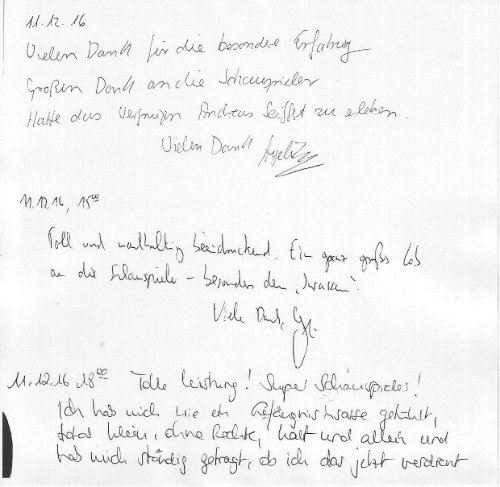 11.12.16
Vielen Dank für die besondere Erfahrung
Großen Dank an die Schauspieler
Hatte das Vergnügen Andreas Seifert zu erleben.
Vielen Dank
11.12.16, 15⁰⁰
Toll und nachhaltig beeindruckend. Ein ganz großes Lob
an die Schauspieler – besonders dem
Viele Dank,
11.12.16 18⁰⁰ Tolle Leistung! Super Schauspieler!
Ich hab mich wie ein Gefängnisinsasse gefühlt,
total klein, ohne Rechte, kalt und allein und
hab mich ständig gefragt, ob ich das jetzt verdient